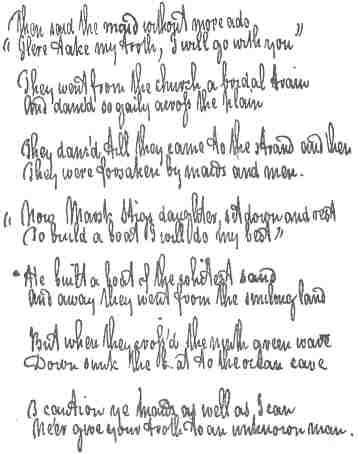 Then said the maid without more ado
"Here take my troth, I will go with you"
They went from the church a bridal train
And danc'd so gaily across the plain
They danc'd till they came to the strand and then
They were forsaken by maids and men.
"Now Marsk Stigs daughter, sit down and rest
To build a boat I will do my best"
He built a boat of the whitest sand
And away they went from the smiling land
But when they cross'd the ninth green wave
Down sunk the boat to the ocean cave
I caution ye maids as well as I can
Ne'er give your troth to an unknown man.